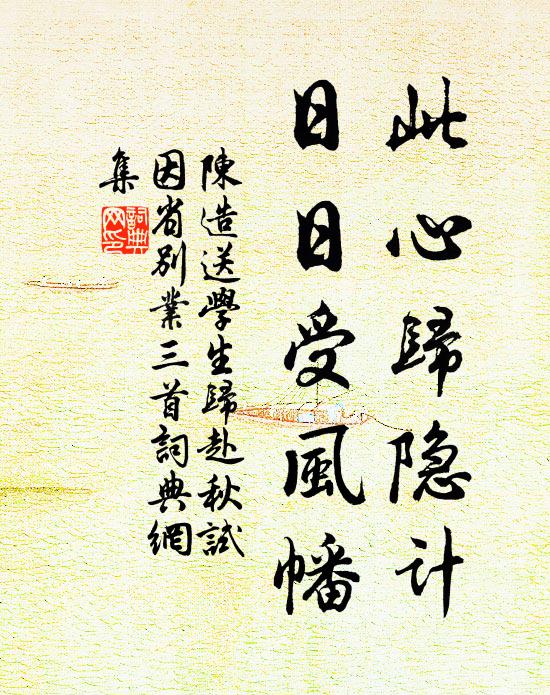 此心歸隐計
日日受風幡
陳造送學生歸赴秋試
因省別業三首詞典網
集
詞典
网印